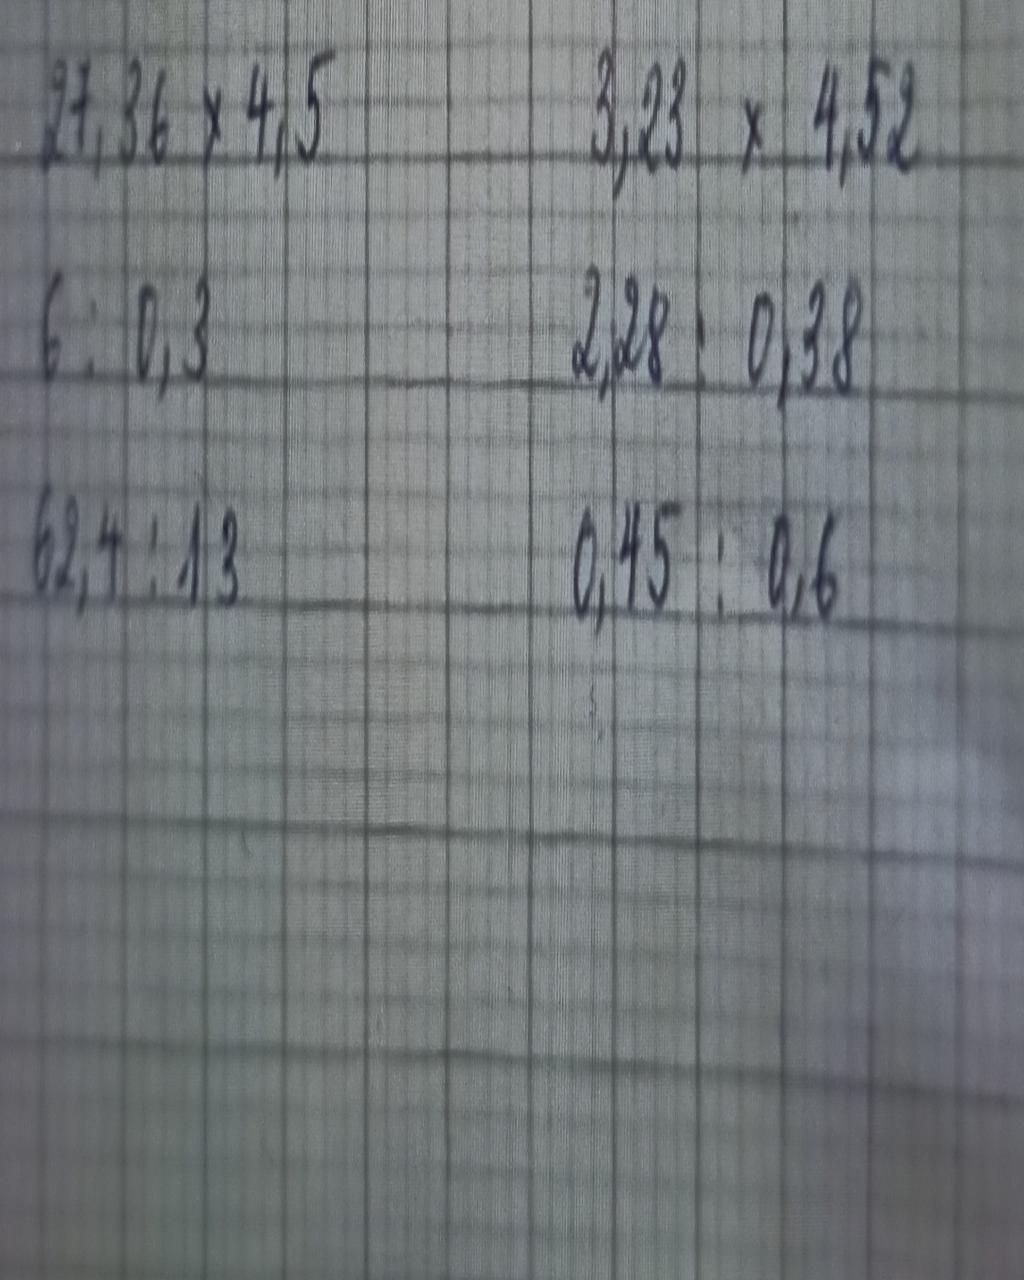 27,36 x 4,5 3,23 x 4,52
6 : 0,3 2,28 : 0,38
62,4 : 13 0,45 : 0,6